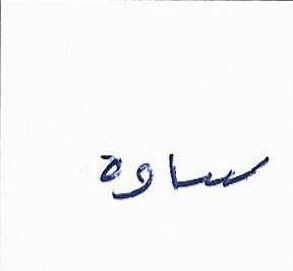 ساوة